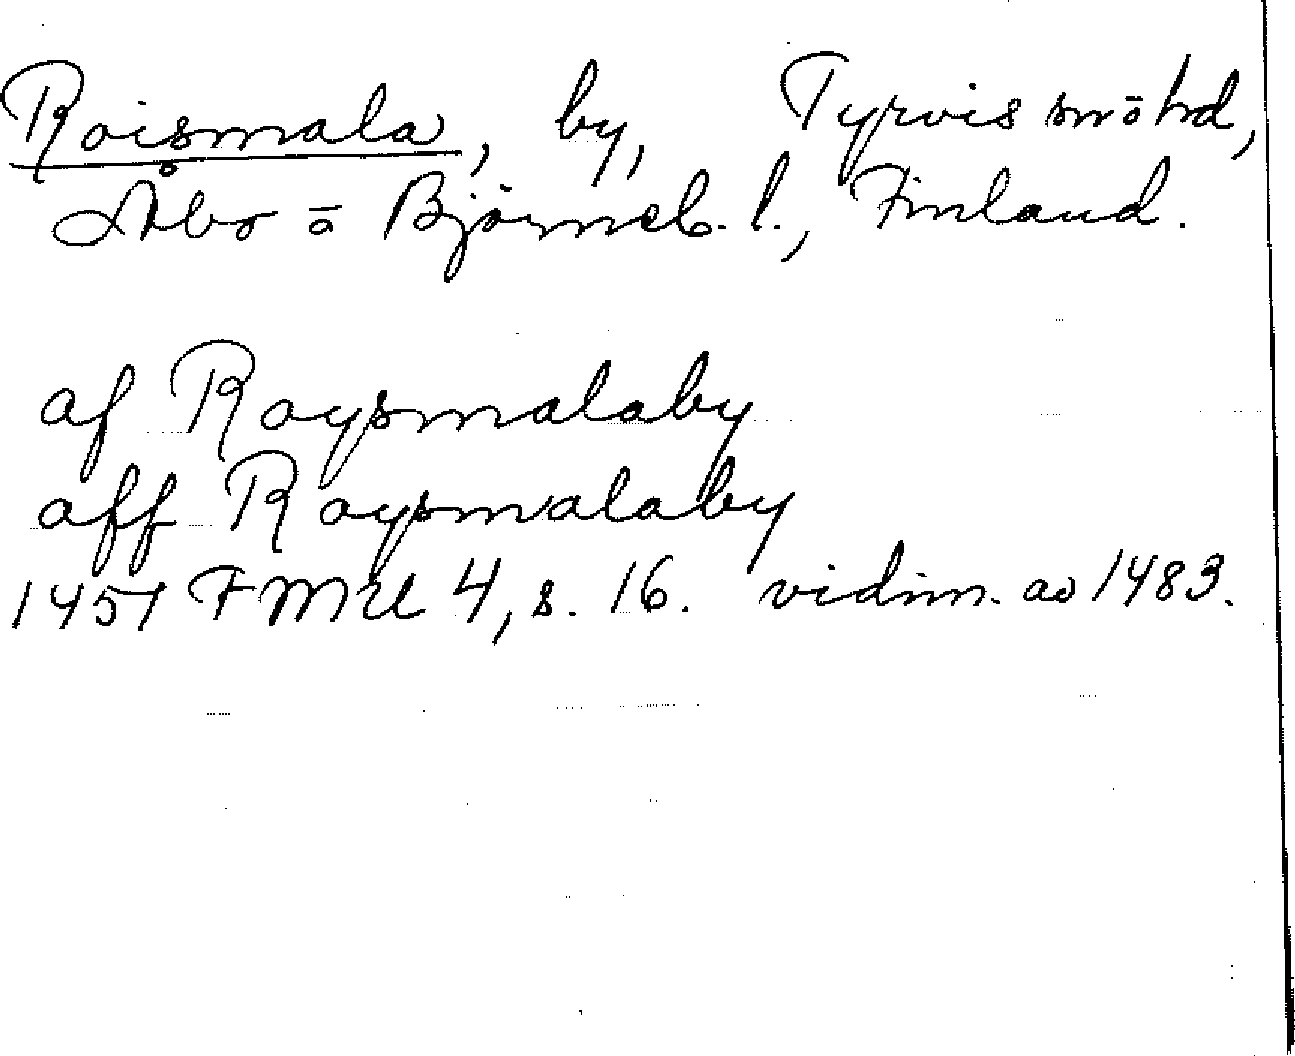 Roismala, by, Tyrvis sn ō hd,
Åbo ō Björneb. l., Finland.
af Roysmalaby
aff Roysmalaby
1457 FMU 4, s. 16. vidim. av 1483.